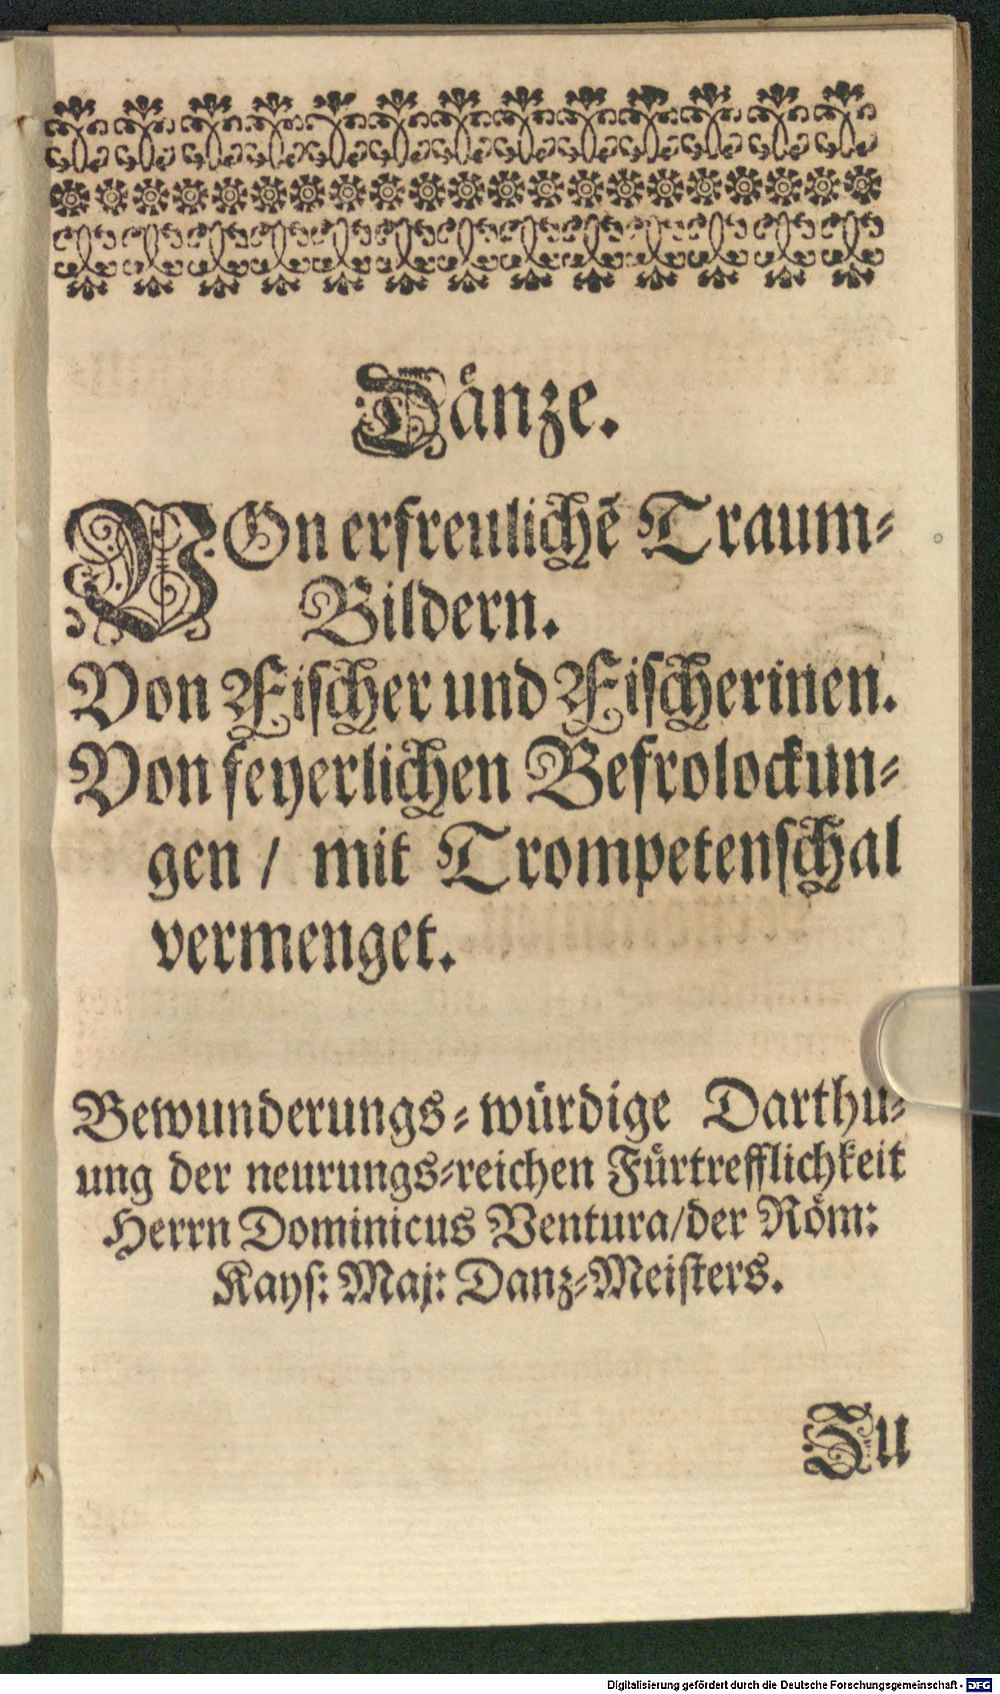 Dänze.
VOn erfreulichē Traum-
Bildern.
Von Fischer und Fischerinen.
Von feyerlichen Befrolockun-
gen / mit Trompetenschal
vermenget.
Bewunderungs-würdige Darthu-
ung der neurungs-reichen Fürtrefflichkeit
Herrn Dominicus Ventura/der Röm:
Kays: Maj: Danz-Meisters.
Zu
Digitalisierung gefördert durch die Deutsche Forschungsgemeinschaft - DFG